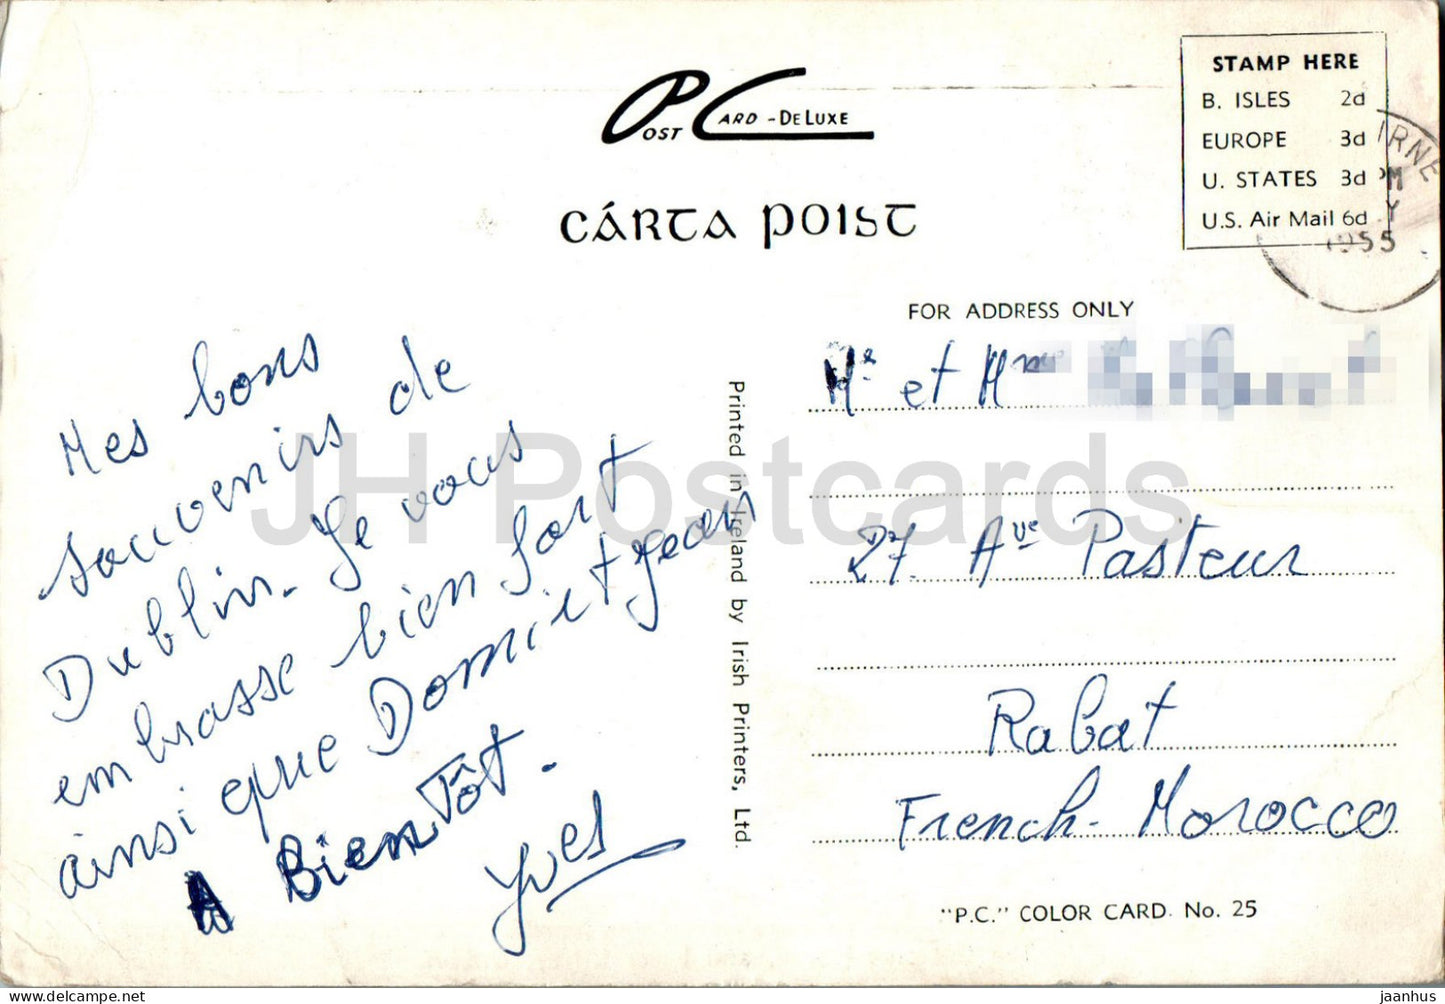 POST CARD - DE LUXE
CÁRTA POIST
STAMP HERE
B. ISLES 2d
EUROPE 3d
U. STATES 3d
U.S. Air Mail 6d
IRNE
PM
Y
1955
FOR ADDRESS ONLY
Mr et Mme
27. Ave Pasteur
Rabat
French-Morocco
"P.C." COLOR CARD. No. 25
Printed in Ireland by Irish Printers, Ltd.
Mes bons
souvenirs de
Dublin. Je vous
embrasse bien fort
ainsi que Domi et Jean
A Bientôt.
Yves
JH Postcards
delcampe.net
jaanhus